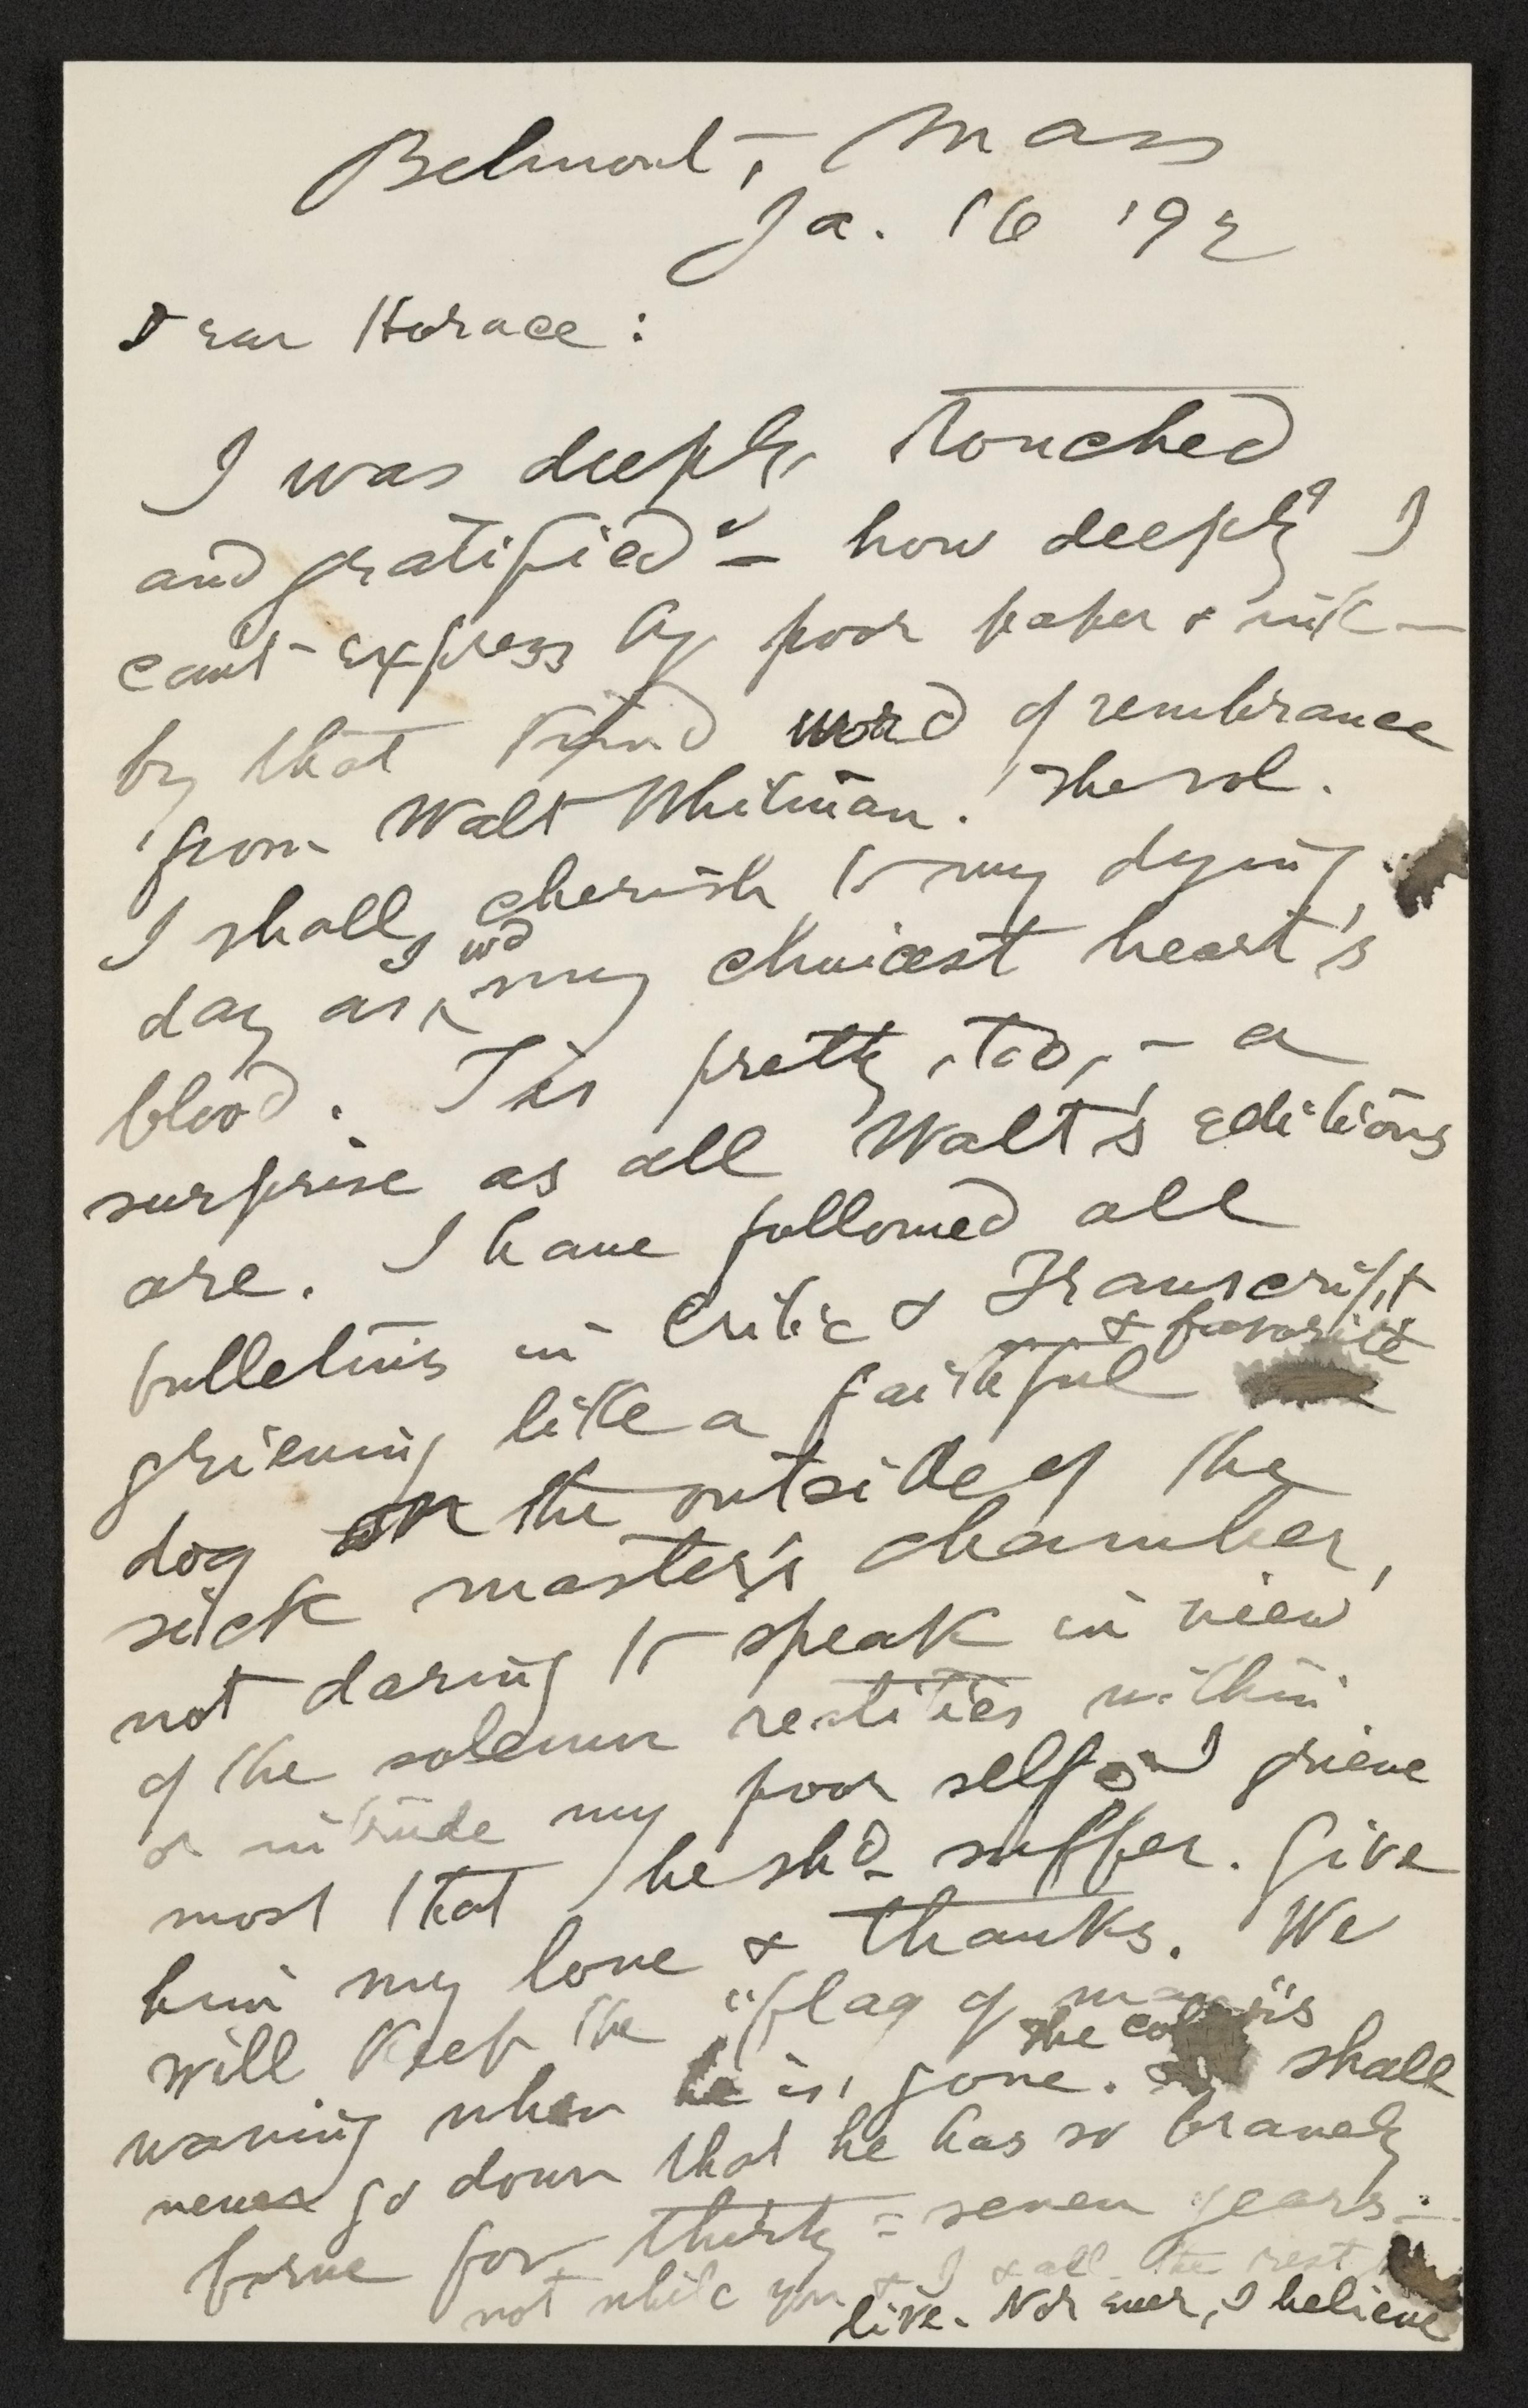 Belmont, Mass
Ja. 16 '92
Dear Horace:
I was deeply touched
and gratified — how deeply I
can't express by poor paper & ink —
by that kind word of rembrance
from Walt Whitman. The vol.
I shall cherish to my dying
day as I wd my choicest heart's
blood. Tis pretty, too, — a
surprise as all Walt's editions
are. I have followed all
bulletins in Critic & Transcript
grieving like a faithful & favorite
dog on the outside of the
sick master's chamber,
not daring to speak in view
of the solemn within
or intrude my poor self. I grieve
most that he shd suffer. Give
him my love & thanks. We
will keep the "flag of
waving when he is gone. The shall
never go down that he has so bravely
borne for thirty-seven years —
not while you & I & all the rest
live. Nor ever, I believe